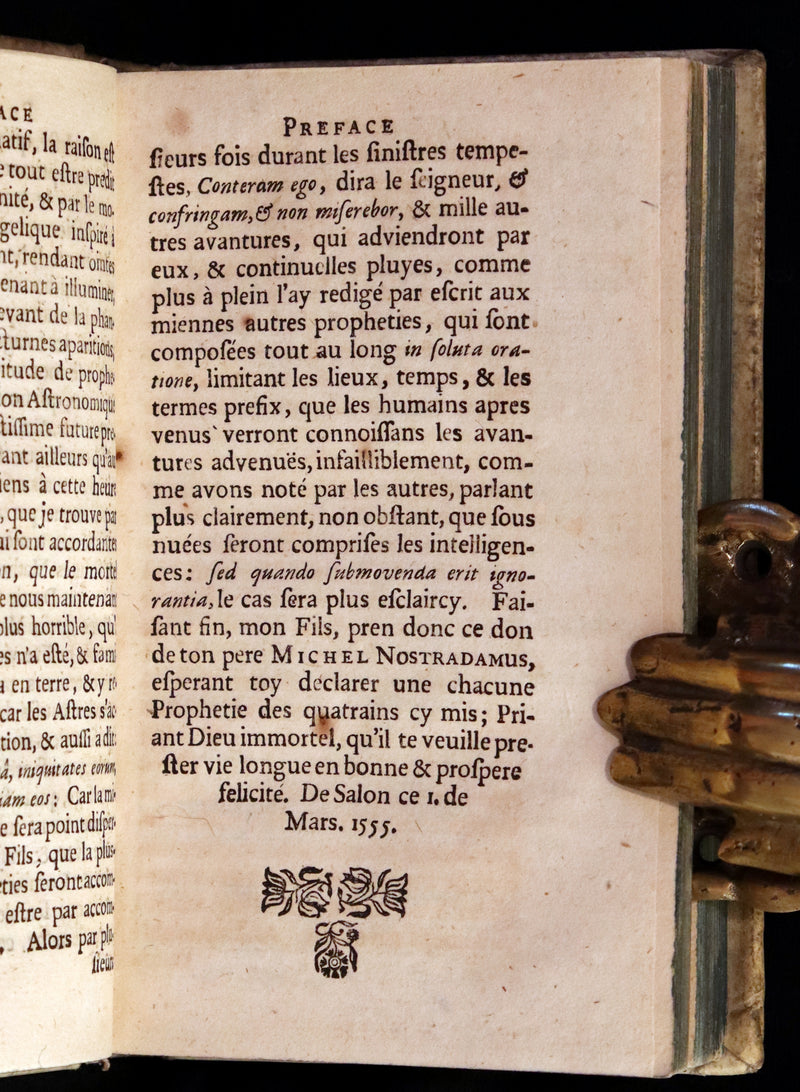 ACE
atif, la raiſon eſt
tout eſtre predit
nité, & par le mo-
gelique inſpiré
nt, rendant
enant à illuminer,
evant de la phan-
turnes aparitions,
itude de prophe-
on Aſtronomique
tiſſime future pro-
ant ailleurs qu'au
iens à cette heure
, que je trouve par
ui ſont accordantes
n, que le morte
e nous maintenant
plus horrible, qu'
es n'a eſté, &
en terre, & y
car les Aſtres s'ac-
tion, & auſſi a dit:
â, iniquitates eorum,
iam eos: Car la mi-
e ſera point diſper-
Fils, que la plus-
ties ſeront accom-
eſtre par accom-
, Alors par plu-
ſieurs
PREFACE
ſieurs fois durant les ſiniſtres tempe-
ſtes, Conteram ego, dira le ſeigneur, &
confringam, & non miſerebor, & mille au-
tres avantures, qui adviendront par
eux, & continuelles pluyes, comme
plus à plein l'ay redigé par eſcrit aux
miennes autres propheties, qui ſont
compoſées tout au long in ſoluta ora-
tione, limitant les lieux, temps, & les
termes prefix, que les humains apres
venus verront connoiſſans les avan-
tures advenuës, infailliblement, com-
me avons noté par les autres, parlant
plus clairement, non obſtant, que ſous
nuées ſeront compriſes les intelligen-
ces: ſed quando ſubmovenda erit igno-
rantia, le cas ſera plus eſclaircy. Fai-
ſant fin, mon Fils, pren donc ce don
de ton pere MICHEL NOSTRADAMUS,
eſperant toy declarer une chacune
Prophetie des quatrains cy mis; Pri-
ant Dieu immortel, qu'il te veuille pre-
ſter vie longue en bonne & proſpere
felicité. De Salon ce 1. de
Mars. 1555.